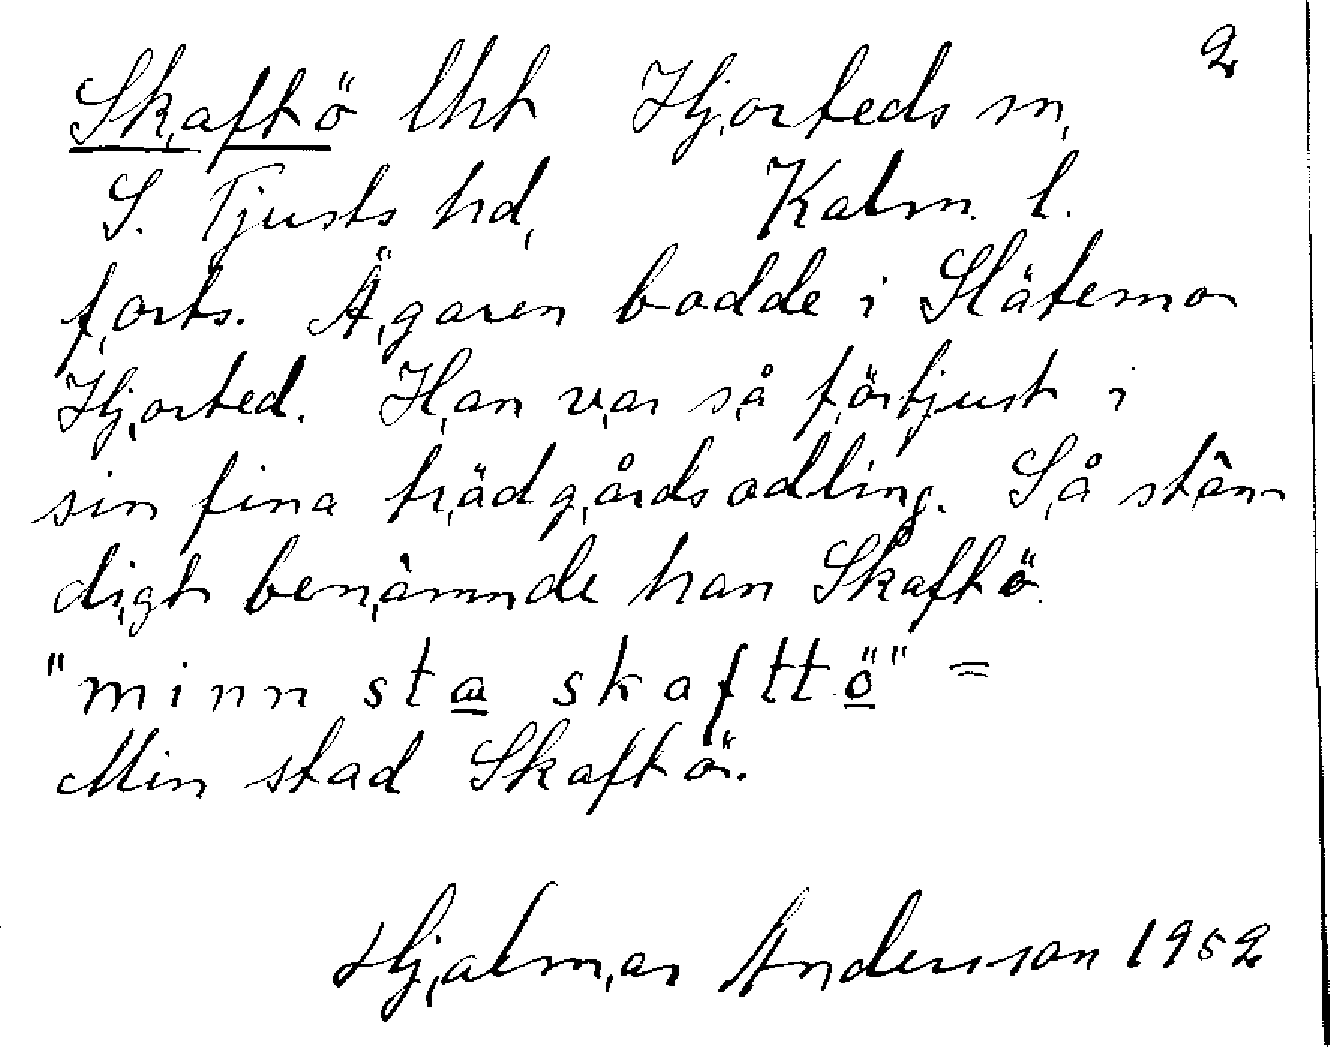 2
Skaftö lht Hjorteds sn,
S. Tjusts hd, Kalm. l.
forts. Ägaren bodde i Slätemo
Hjorted. Han var så förtjust i
sin fina trädgårdsodling. Så stän
digt benämnde han Skaftö.
"minn sta skafttö" =
Min stad Skaftö.
Hjalmar Andersson 1952